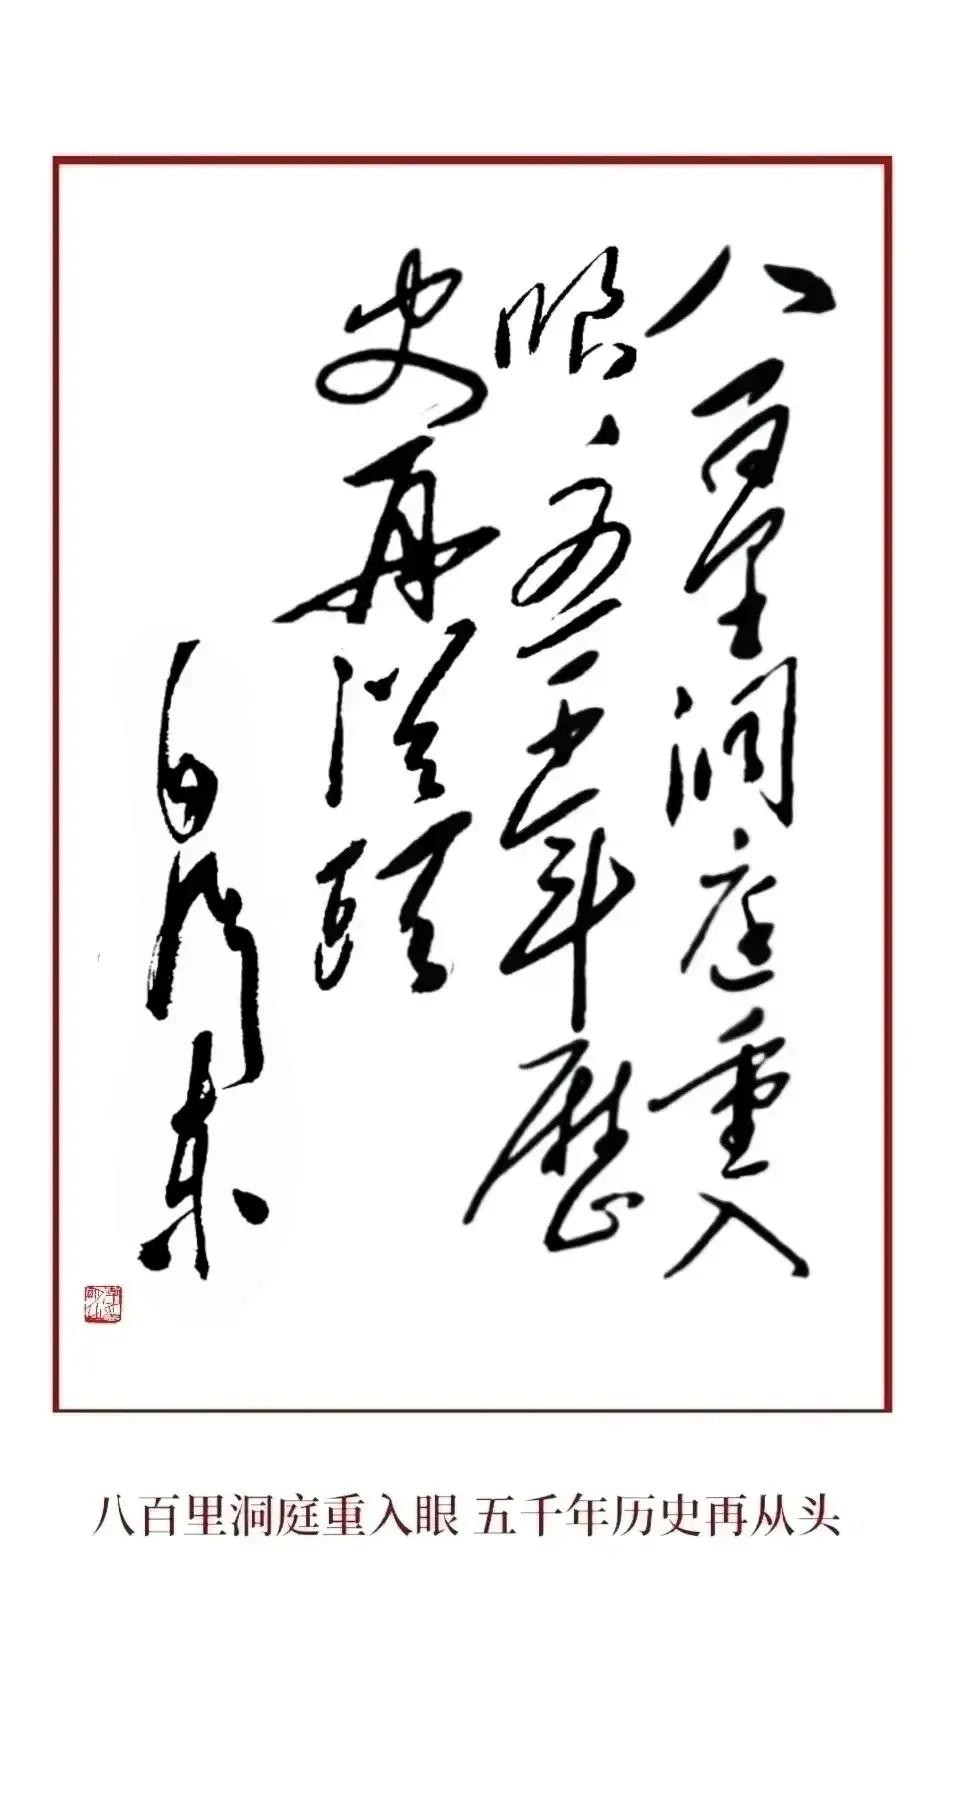 八百里洞庭重入
眼五千年歷
史再從頭
八百里洞庭重入眼 五千年历史再从头